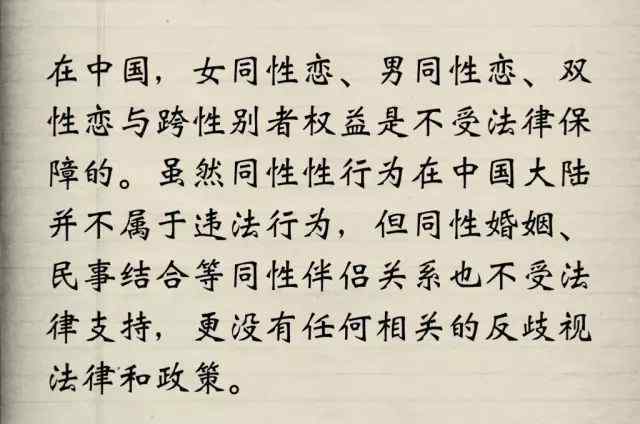 在中国，女同性恋、男同性恋、双
性恋与跨性别者权益是不受法律保
障的。虽然同性性行为在中国大陆
并不属于违法行为，但同性婚姻、
民事结合等同性伴侣关系也不受法
律支持，更没有任何相关的反歧视
法律和政策。